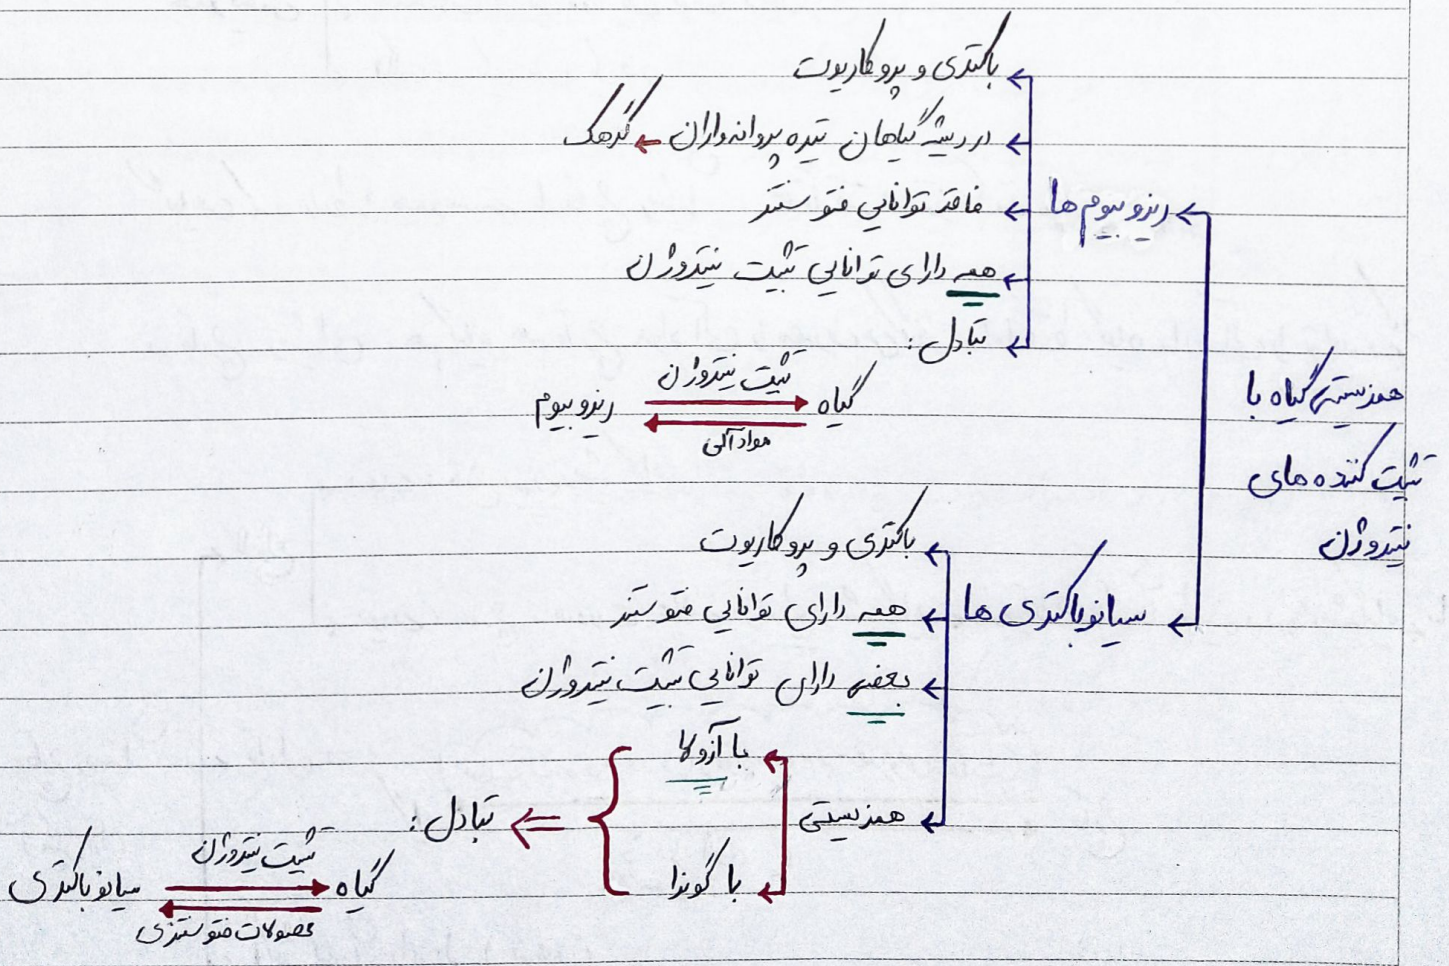 همزیستی گیاه با
تثبیت کننده های
نیتروژن
ریزوبیوم ها
باکتری و پروکاریوت
در ریشه گیاهان تیره پروانه واران ← گرهک
فاقد توانایی فتوسنتز
همه دارای توانایی تثبیت نیتروژن
تبادل:
تثبیت نیتروژن
گیاه
ریزوبیوم
مواد آلی
سیانوباکتری ها
باکتری و پروکاریوت
همه دارای توانایی فتوسنتز
بعضی دارای توانایی تثبیت نیتروژن
همزیستی
با آزولا
با گونرا
تبادل:
تثبیت نیتروژن
گیاه
سیانوباکتری
محصولات فتوسنتزی